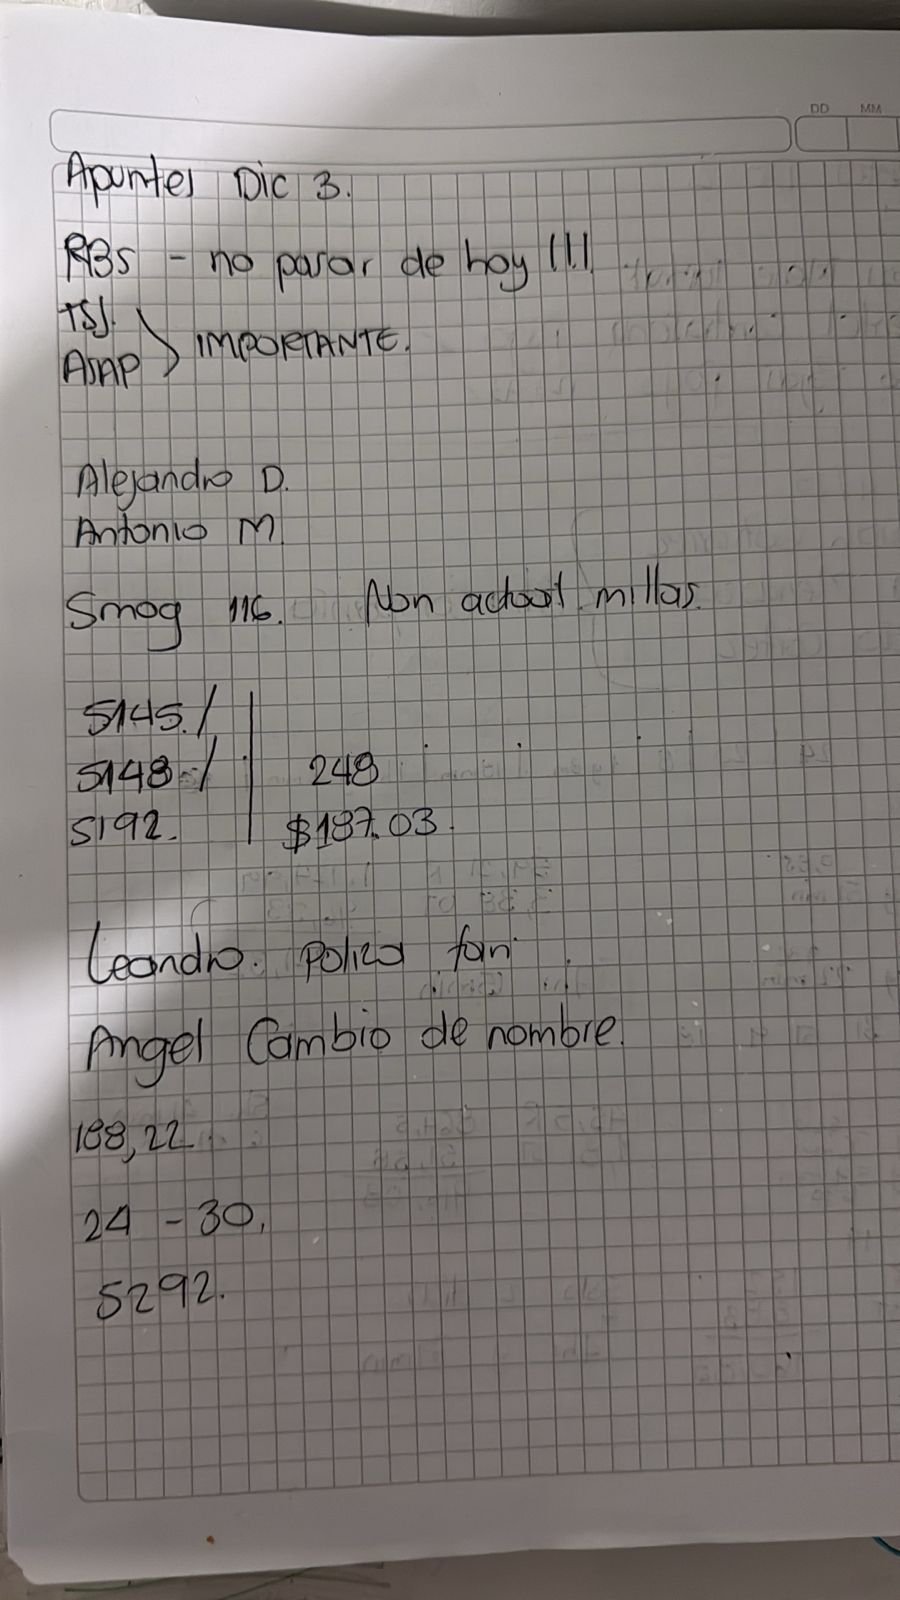 DD MM
Apuntes Dic 3.
RBS - no pasar de hoy !!!
TSJ.
ASAP > IMPORTANTE.
Alejandro D.
Antonio M.
Smog 116. Non actual millas.
5145. /
5148 - / 248
5192. $187.03.
Leandro. Poliza fari
Angel Cambio de nombre.
188,22
24 - 30,
5292.